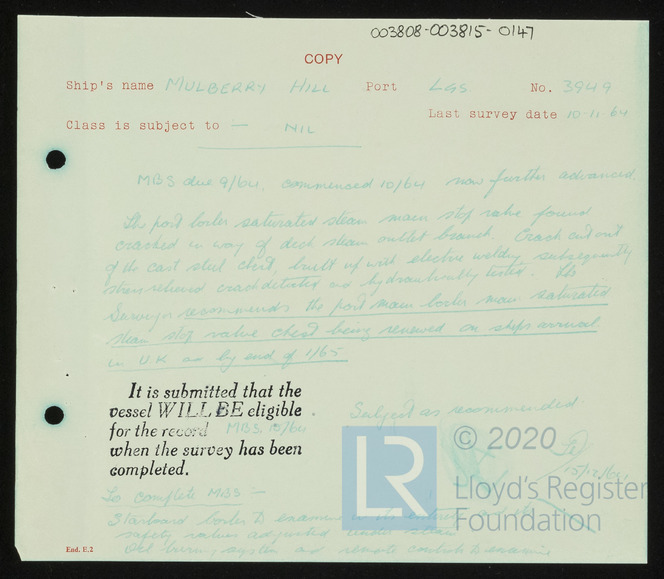 003808-003815-0147
COPY
Ship's name MULBERRY HILL Port LGS No. 3949
Last survey date 10.11.64
Class is subject to — NIL
MBS due 9/64, commenced 10/64 now further advanced.
The port boiler saturated steam main stop valve found
cracked in way of desh steam outlet branch. Crack cut out
of the cast steel chest, built up with electric welding subsequently
stress relieved crackdetected and hydraulically tested. The
Surveyor recommends the port main boiler main saturated
steam stop valve chest being renewed on ships arrival
in U.K. or by end of 1/65
It is submitted that the
vessel WILL BE eligible
for the record MBS. 10/64
when the survey has been
completed.
Subject as recommended
15/12/64
© 2020
LR
Lloyd's Register
Foundation
To complete MBS —
Starboard boiler to examine in its entirety and
safety valves adjusted under steam
Oil burning system and remote controls to examine
End. E.2